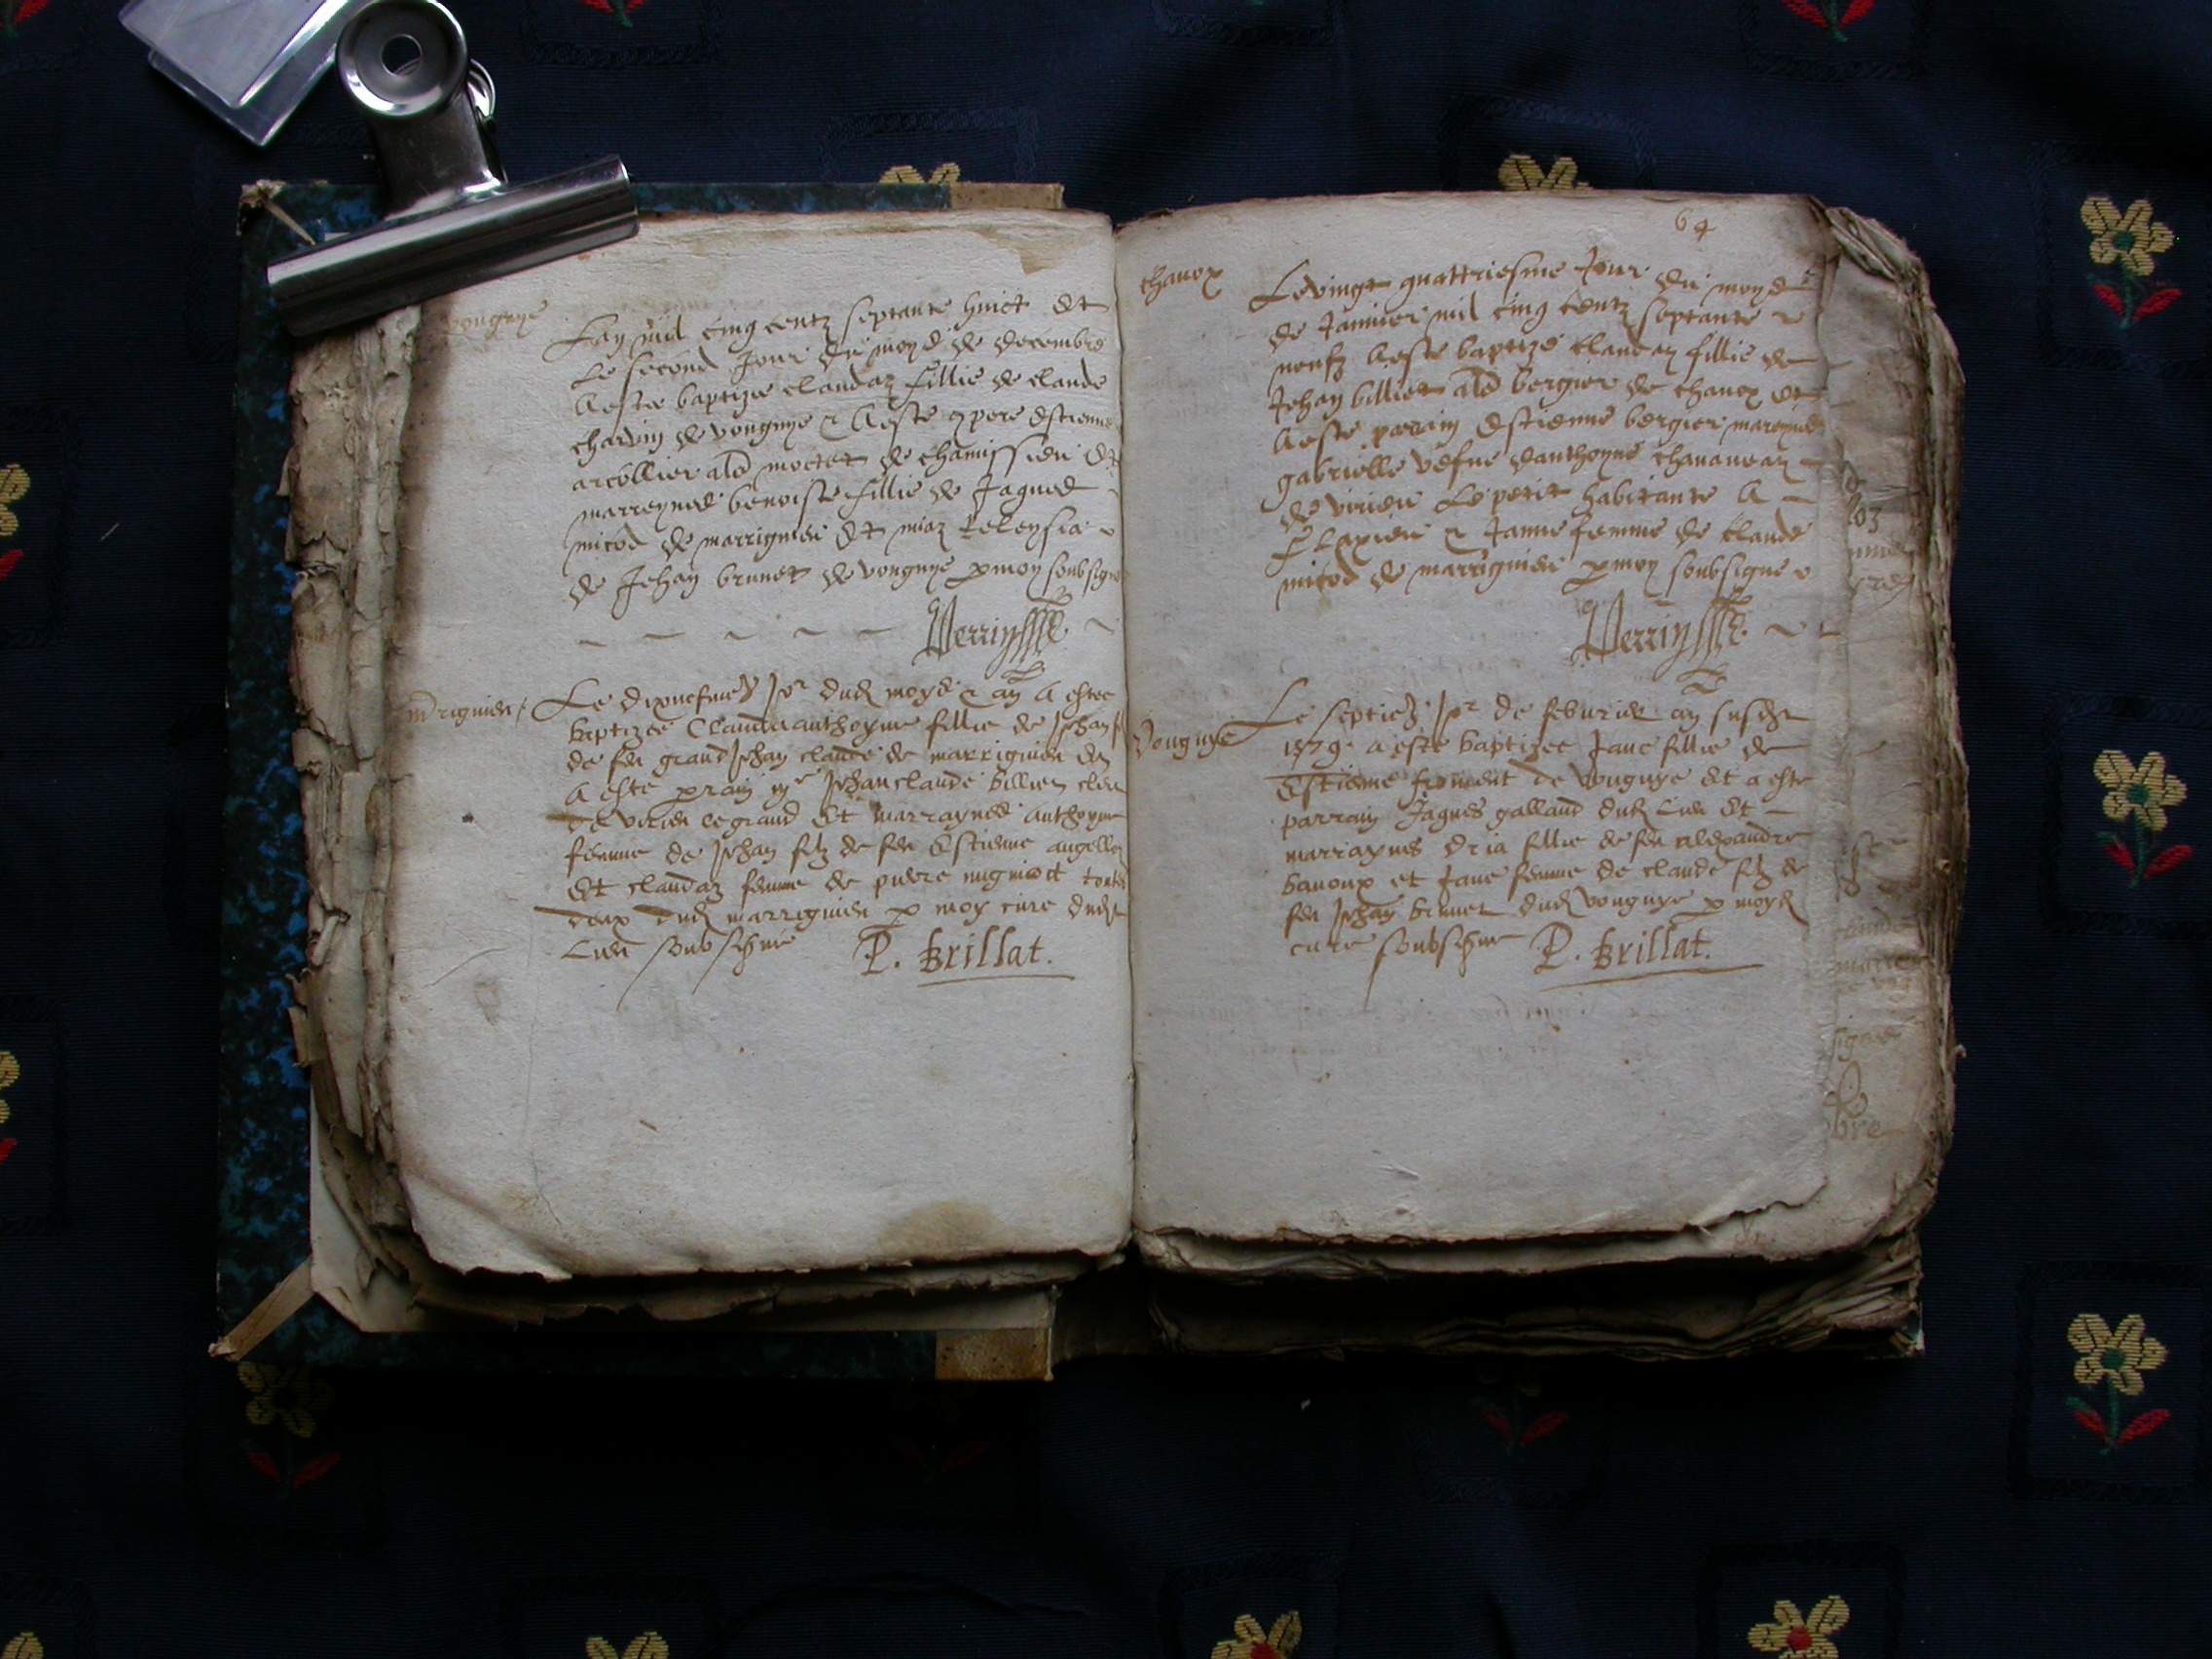 vongnye
Lan mil cinq centz septante huict Et
Le second Jour du moys de decembre
A este baptizee claudaz fillie de claude
charvin de vongnye & A este compere Estienne
arcollier als moctet de chamissieu Et
marreynes benoiste fillie de Jaques
micod de marrignieu Et miaz
de Jehan brunet de vongnye p moy soubsigne
Perrin
mrignieu
Le dixneufme Jor dud moys & an A estee
baptizee Claudaanthoyne fillie de Jehan
de feu grand Jehan claude de marrignieu Et
A este parain mre Jehanclaude billiet
de virieu le grand Et marraynes anthoyne
femme de Jehan filz de feu Estienne
Et claudaz femme de piere mugniect toutes
deux dud marrignieu p moy cure dudt
Lieu soubsigne P. Brillat.
64
chavox
Le vingt quattriesme Jour du moys
de Janvier mil cinq centz septante &
neufz A este baptize claudaz fillie de
Jehan billiet als bergier de chavox Et
A este parrin Estienne bergier mareynes
gabrielle vefue danthoyne
de virieu Le petit habitante A
flaxieu & Janne femme de claude
micod de marrignieu p moy soubsigne
Perrin
Vongnye
Le septieme Jor de febvrier an susdt
1579. a este baptizee Jane fillie de
Estienne froment de Vongnye Et a este
parrain Jaques galland dud Lieu Et
marraynes dria fillie de feu alexandre
banoux et Jane femme de claude filz de
feu Jehan brunet dud vongnye p moyd
cure soubsigne P. Brillat.